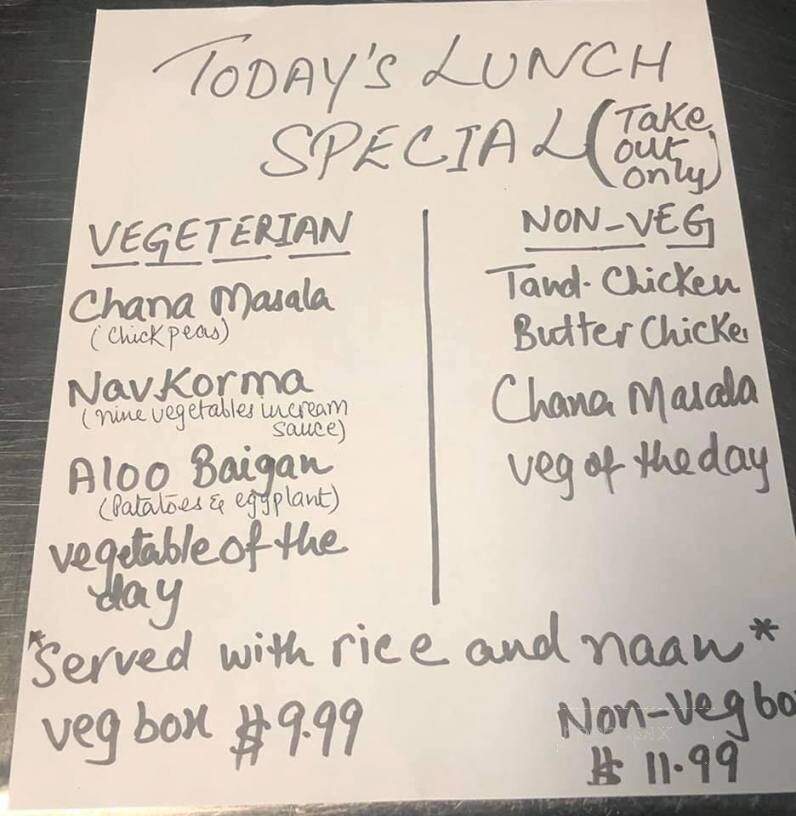 TODAY'S LUNCH
SPECIAL (Take
out
only)
VEGETERIAN
Chana Masala
(Chick peas)
Nav Korma
(nine vegetables in cream
sauce)
Aloo Baigan
(Patatoes & eggplant)
vegetable of the
day
NON-VEG
Tand. Chicken
Butter Chicke
Chana Masala
veg of the day
*Served with rice and naan*
veg box $9.99
Non-veg bo
$ 11.99